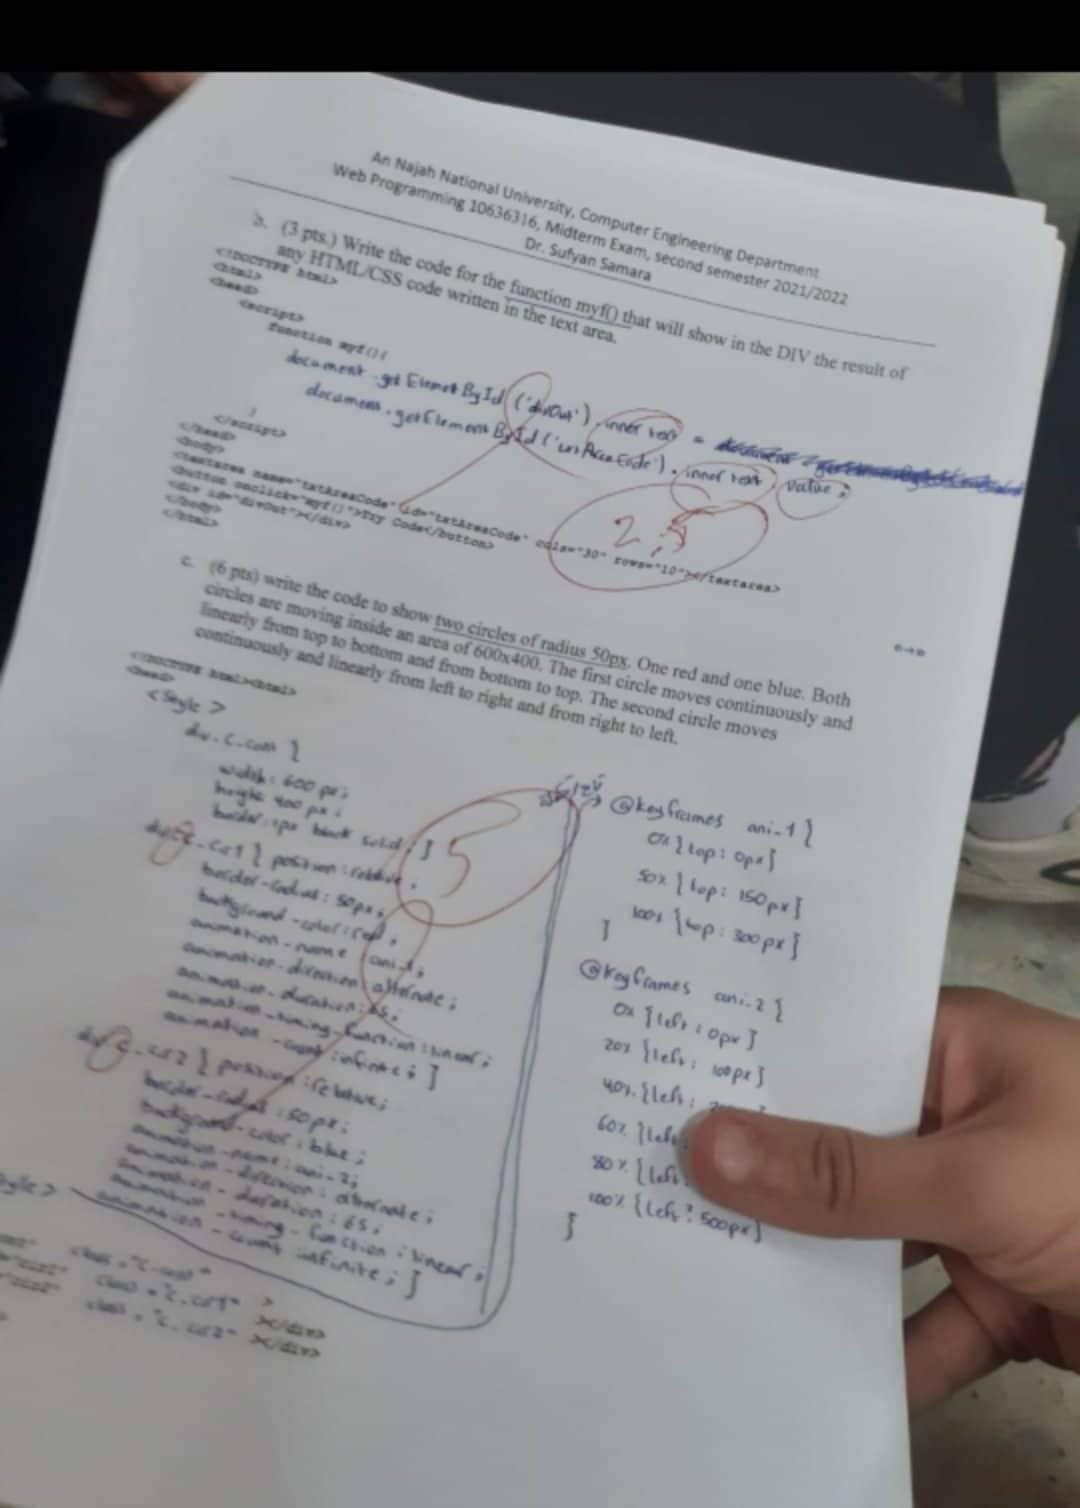 An Najah National University, Computer Engineering Department
Web Programming 10636316, Midterm Exam, second semester 2021/2022
Dr. Sufyan Samara
b. (3 pts.) Write the code for the function myf() that will show in the DIV the result of
any HTML/CSS code written in the text area.
<!DOCTYPE html>
<html>
<head>
<script>
function myf(){
document.getElemetById('divOut').inner text =
document.getElementById('txtAreaCode').inner text.value;
}
</script>
</head>
<body>
<textarea name="txtAreaCode" id="txtAreaCode" cols="30" rows="10"></textarea>
<button onclick="myf()">Try Code</button>
<div id="divOut"></div>
</body>
</html>
2,5
c. (6 pts) write the code to show two circles of radius 50px. One red and one blue. Both
circles are moving inside an area of 600x400. The first circle moves continuously and
linearly from top to bottom and from bottom to top. The second circle moves
continuously and linearly from left to right and from right to left.
<!DOCTYPE html><html>
<head>
<style>
width: 600px;
height 400px;
solid; }
5
{ position: relative;
border-radius: 50px;
background-color: red;
animation-name ani-1;
animation-direction alternate;
animation-duration: 6s;
animation-timing-function: linear;
animation-count: infinite; }
{ position: relative;
border-radius: 50px;
background-color: blue;
animation-name: ani-2;
animation-direction: alternate;
animation-duration: 6s;
animation-timing-function: linear;
animation-count infinite; }
@keyframes ani-1 {
0% {top: 0px}
50% {top: 150px}
100% {top: 300px}
}
@keyframes ani-2 {
0% {left: 0px}
20% {left: 100px}
40% {left:
60% {left
80% {left:
100% {left: 500px}
}
class=
class=
></div>
class=
></div>